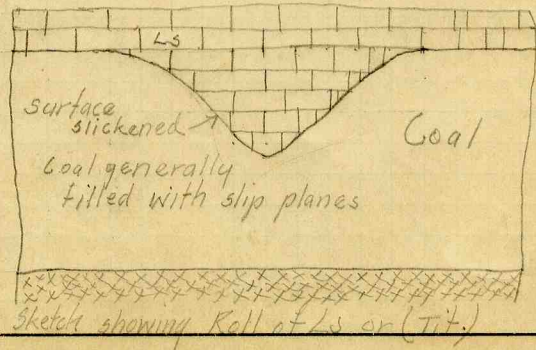 Ls
Surface
slickened
Coal
Coal generally
filled with slip planes
Sketch showing Roll of Ls or (Tit.)